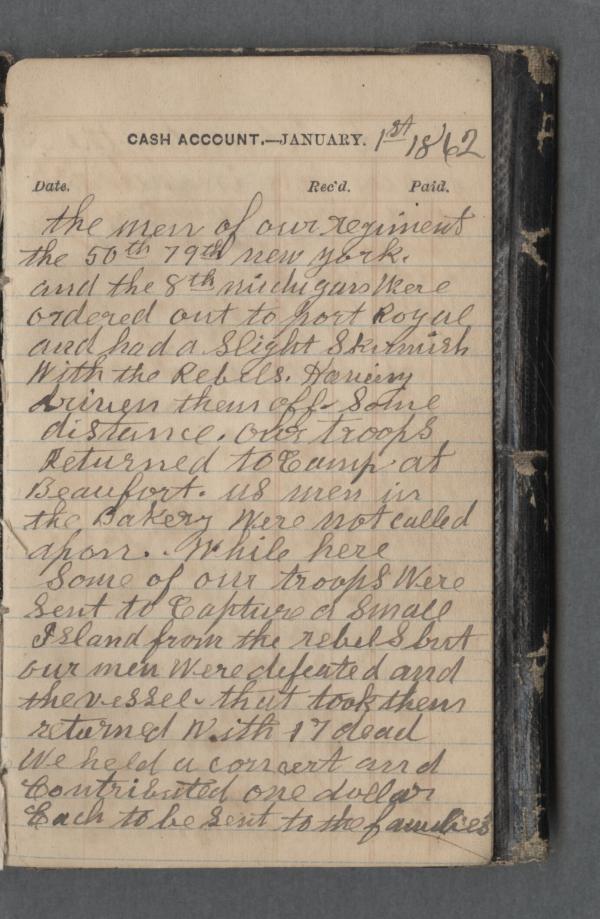 CASH ACCOUNT.—JANUARY. 1st 1862
Date. Rec'd. Paid.
the men of our regiment
the 50th 79th new york.
and the 8th michigan Were
ordered out to port Royal
and had a Slight Skirmish
With the Rebels. Having
driven them off Some
distance. our troops
Returned to Camp at
Beaufort. us men in
the Bakery Were not called
apon. While here
Some of our troops Were
Sent to Capture a Small
Island from the rebels but
our men Were defeated and
the vessel that took them
returned With 17 dead
We held a concert and
Contributed one dollar
Each to be Sent to the families